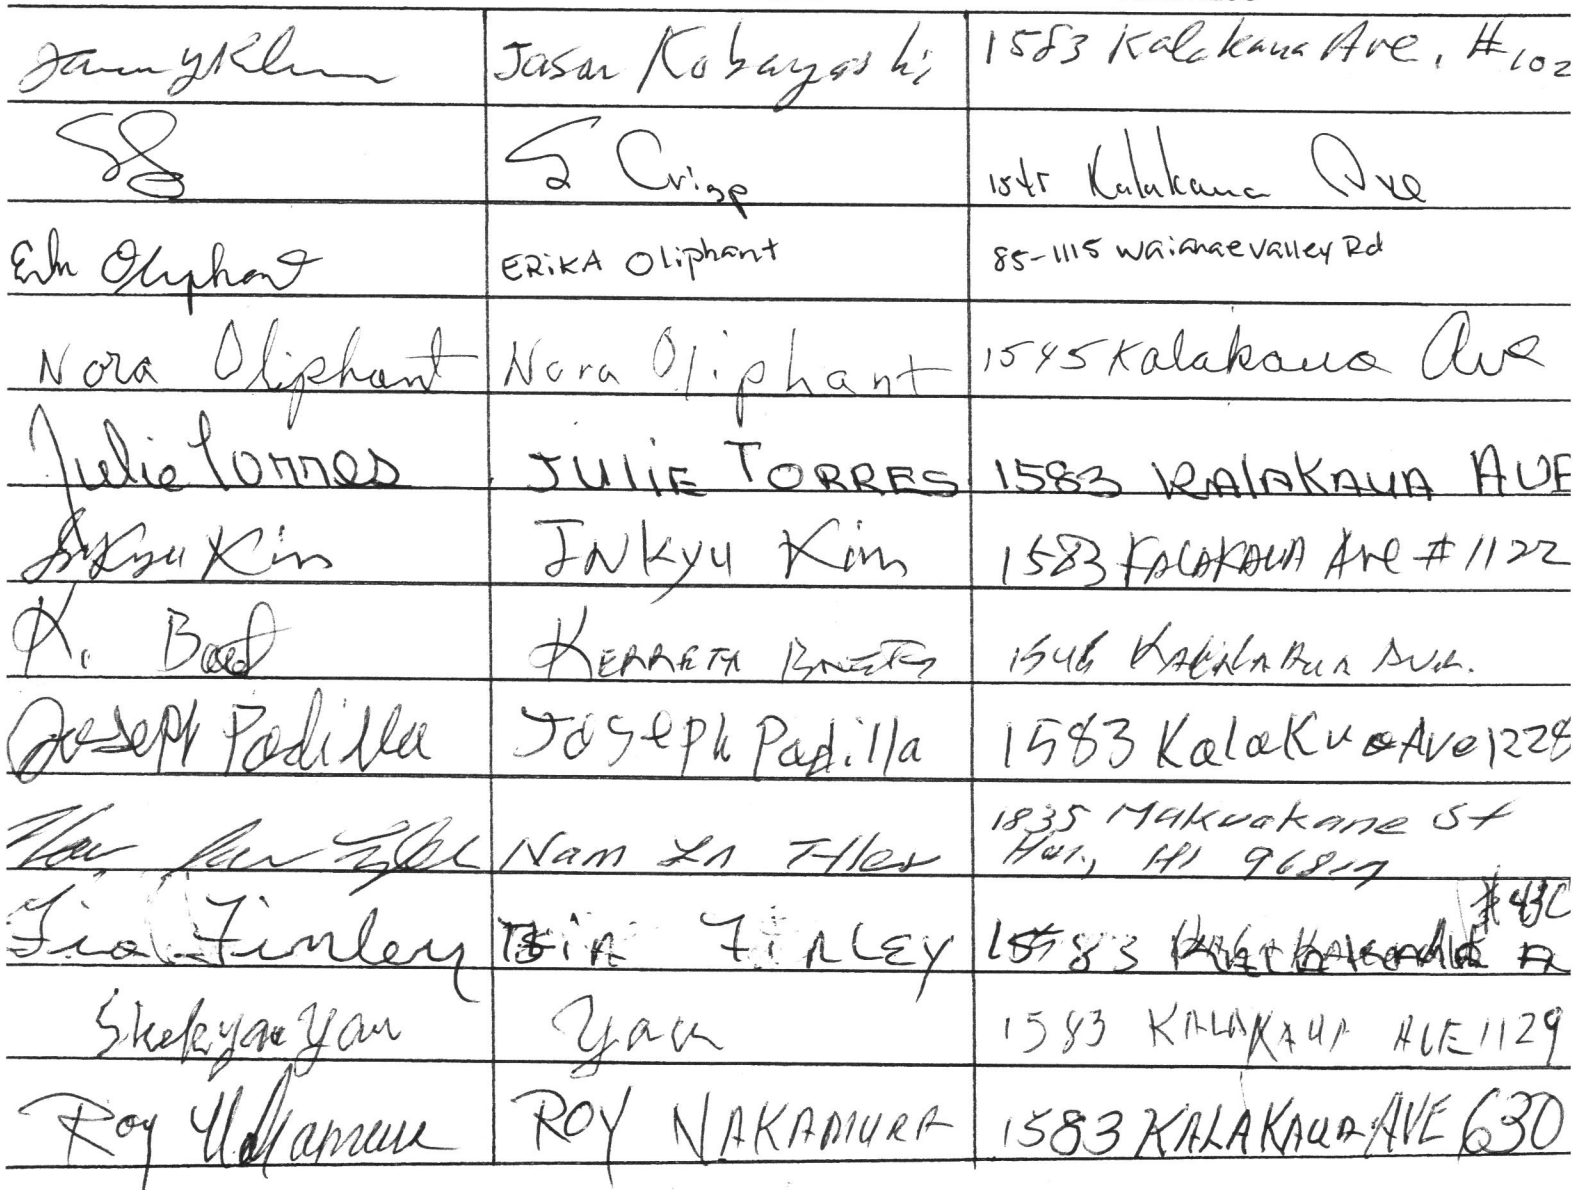 Jason Kobayashi 1583 Kalakaua Ave, #102
S Crisp 1545 Kalakaua Ave
Oliphant ERIKA Oliphant 85-1115 Waianae Valley Rd
Nora Oliphant Nora Oliphant 1545 Kalakaua Ave
Julie Torres JULIE TORRES 1583 KALAKAUA AVE
Inkyu Kim INKyu Kim 1583 KALAKAUA Ave #1122
K. 1545 KALAKAUA Ave.
Joseph Padilla Joseph Padilla 1583 Kalakua Ave 1228
Nam 1835 Makuakane St
Hon, HI 96817
Finley FINLEY 1583
Yau Yau 1583 KALAKAUA AVE 1129
Roy Nakamura ROY NAKAMURA 1583 KALAKAUA AVE 630